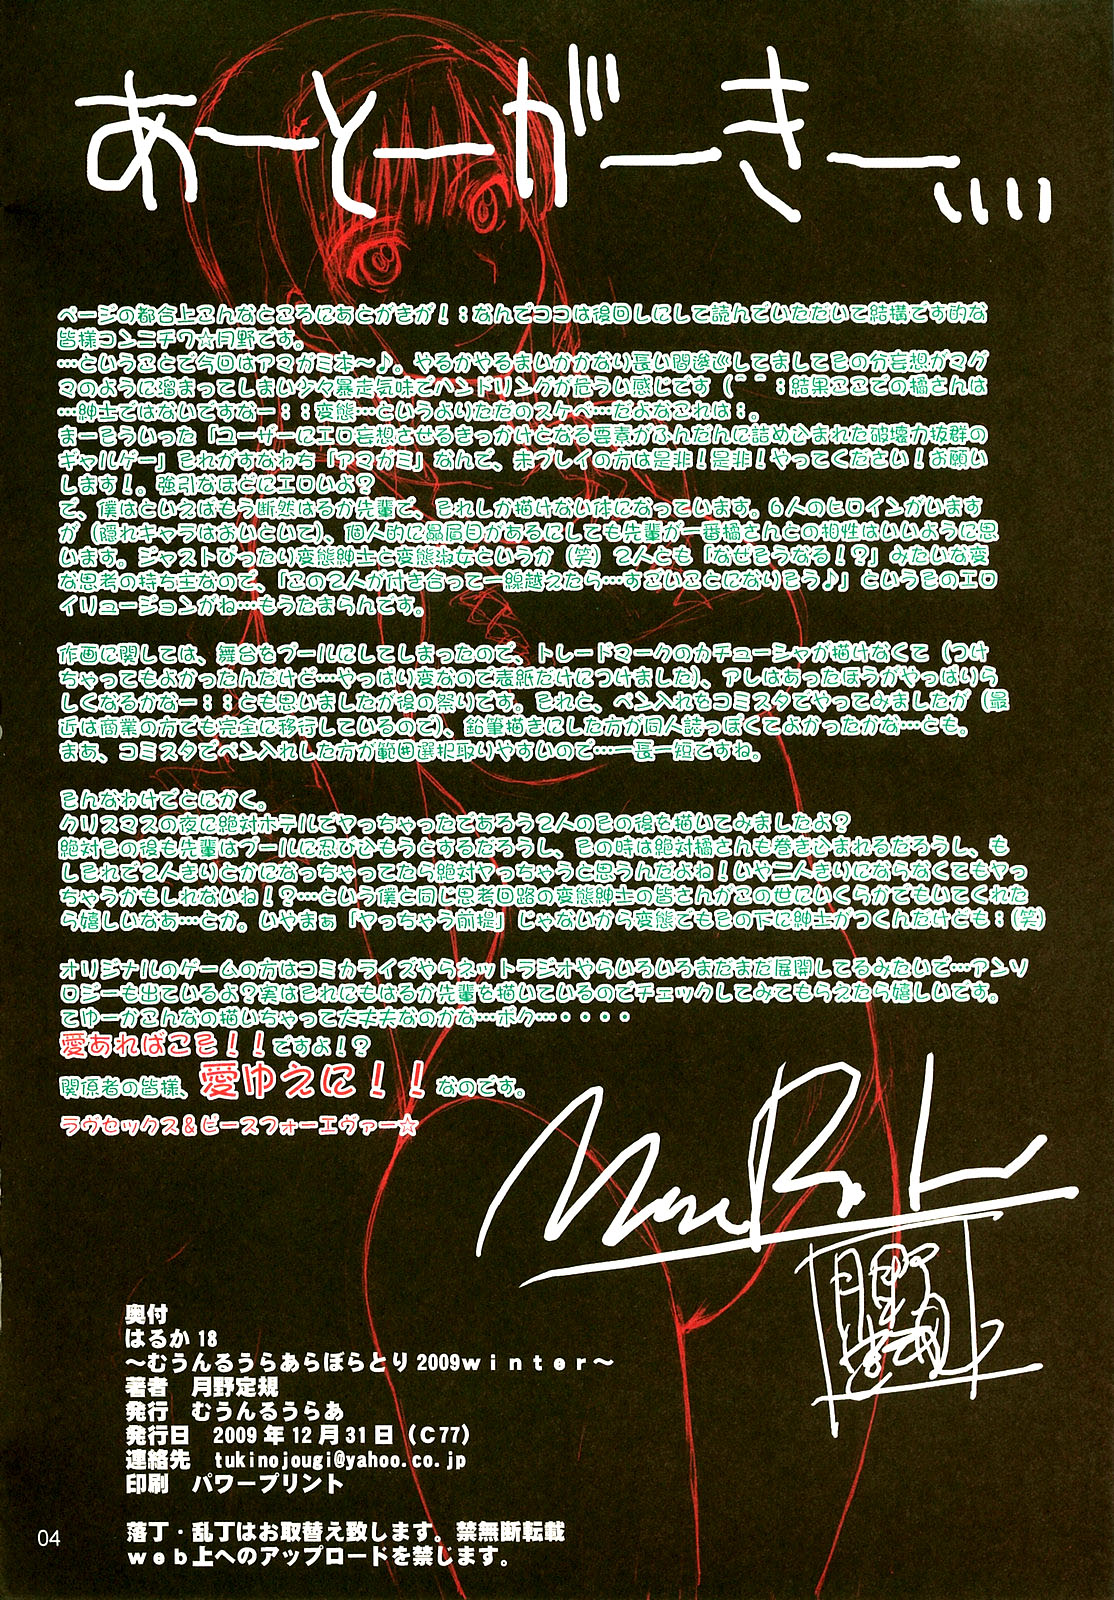 あーとーがーきー、、、、
ページの都合上こんなところにあとがきが！；なんでココは後回しにして読んでいただいて結構です的な
皆様コンニチワ☆月野です。
…ということで今回はアマガミ本～♪。やるかやるまいかかなり長い間逡巡してましてその分妄想がマグ
マのように溜まってしまい少々暴走気味でハンドリングが危うい感じです（＾＾；結果ここでの橘さんは
…紳士ではないですなー；；変態…というよりただのスケベ…だよなこれは；。
まーそういった「ユーザーにエロ妄想させるきっかけとなる要素がふんだんに詰め込まれた破壊力抜群の
ギャルゲー」それがすなわち「アマガミ」なんで、未プレイの方は是非！是非！やってください！お願い
します！。強引なほどにエロいよ？
で、僕はといえばもう断然はるか先輩で、それしか描けない体になっています。6人のヒロインがいます
が（隠れキャラはおいといて）、個人的に贔屓目があるにしても先輩が一番橘さんとの相性はいいように思
います。ジャストぴったり変態紳士と変態淑女というか（笑）2人とも「なぜそうなる！？」みたいな変
な思考の持ち主なので、「この2人が付き合って一線越えたら…すごいことになりそう♪」というそのエロ
イリュージョンがね…もうたまらんです。
作画に関しては、舞台をプールにしてしまったので、トレードマークのカチューシャが描けなくて（つけ
ちゃってもよかったんだけど…やっぱり変なので表紙だけにつけました）、アレはあったほうがやっぱりら
しくなるかなー；；とも思いましたが後の祭りです。それと、ペン入れをコミスタでやってみましたが（最
近は商業の方でも完全に移行しているので）、鉛筆描きにした方が同人誌っぽくてよかったかな…とも。
まあ、コミスタでペン入れした方が範囲選択取りやすいので…一長一短ですね。
そんなわけでとにかく。
クリスマスの夜に絶対ホテルでヤっちゃったであろう2人のその後を描いてみましたよ？
絶対その後も先輩はプールに忍びひもうとするだろうし、その時は絶対橘さんも巻きひまれるだろうし、も
しそれで2人きりとかになっちゃってたら絶対ヤっちゃうと思うんだよね！いや二人きりにならなくてもヤっ
ちゃうかもしれないね！？…という僕と同じ思考回路の変態紳士の皆さんがこの世にいくらかでもいてくれた
ら嬉しいなあ…とか。いやまぁ「ヤっちゃう前提」じゃないから変態でもその下に紳士がつくんだけども；（笑）
オリジナルのゲームの方はコミカライズやらネットラジオやらいろいろまだまだ展開してるみたいで…アンソ
ロジーも出ているよ？実はそれにもはるか先輩を描いているのでチェックしてみてもらえたら嬉しいです。
てゆーかこんなの描いちゃって大丈夫なのかな…ボク…・・・・
愛あればこそ！！ですよ！？
関係者の皆様、愛ゆえに！！なのです。
ラヴセックス＆ピースフォーエヴァー☆
奥付
はるか18
～むうんるうらあらぼらとり2009winter～
著者　月野定規
発行　むうんるうらあ
発行日　2009年12月31日（C77）
連絡先　tukinojougi@yahoo.co.jp
印刷　パワープリント
落丁・乱丁はお取替え致します。禁無断転載
web上へのアップロードを禁じます。
04